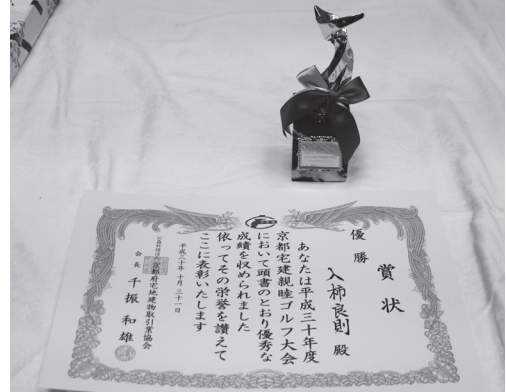 賞状
優勝
入柿良則 殿
あなたは平成三十年度
京都宅建親睦ゴルフ大会
において頭書のとおり優秀な
成績を収められました
依ってその栄誉を讃えて
ここに表彰いたします
平成三十年十月三十一日
公益社団法人京都府宅地建物取引業協会
会長 千振和雄